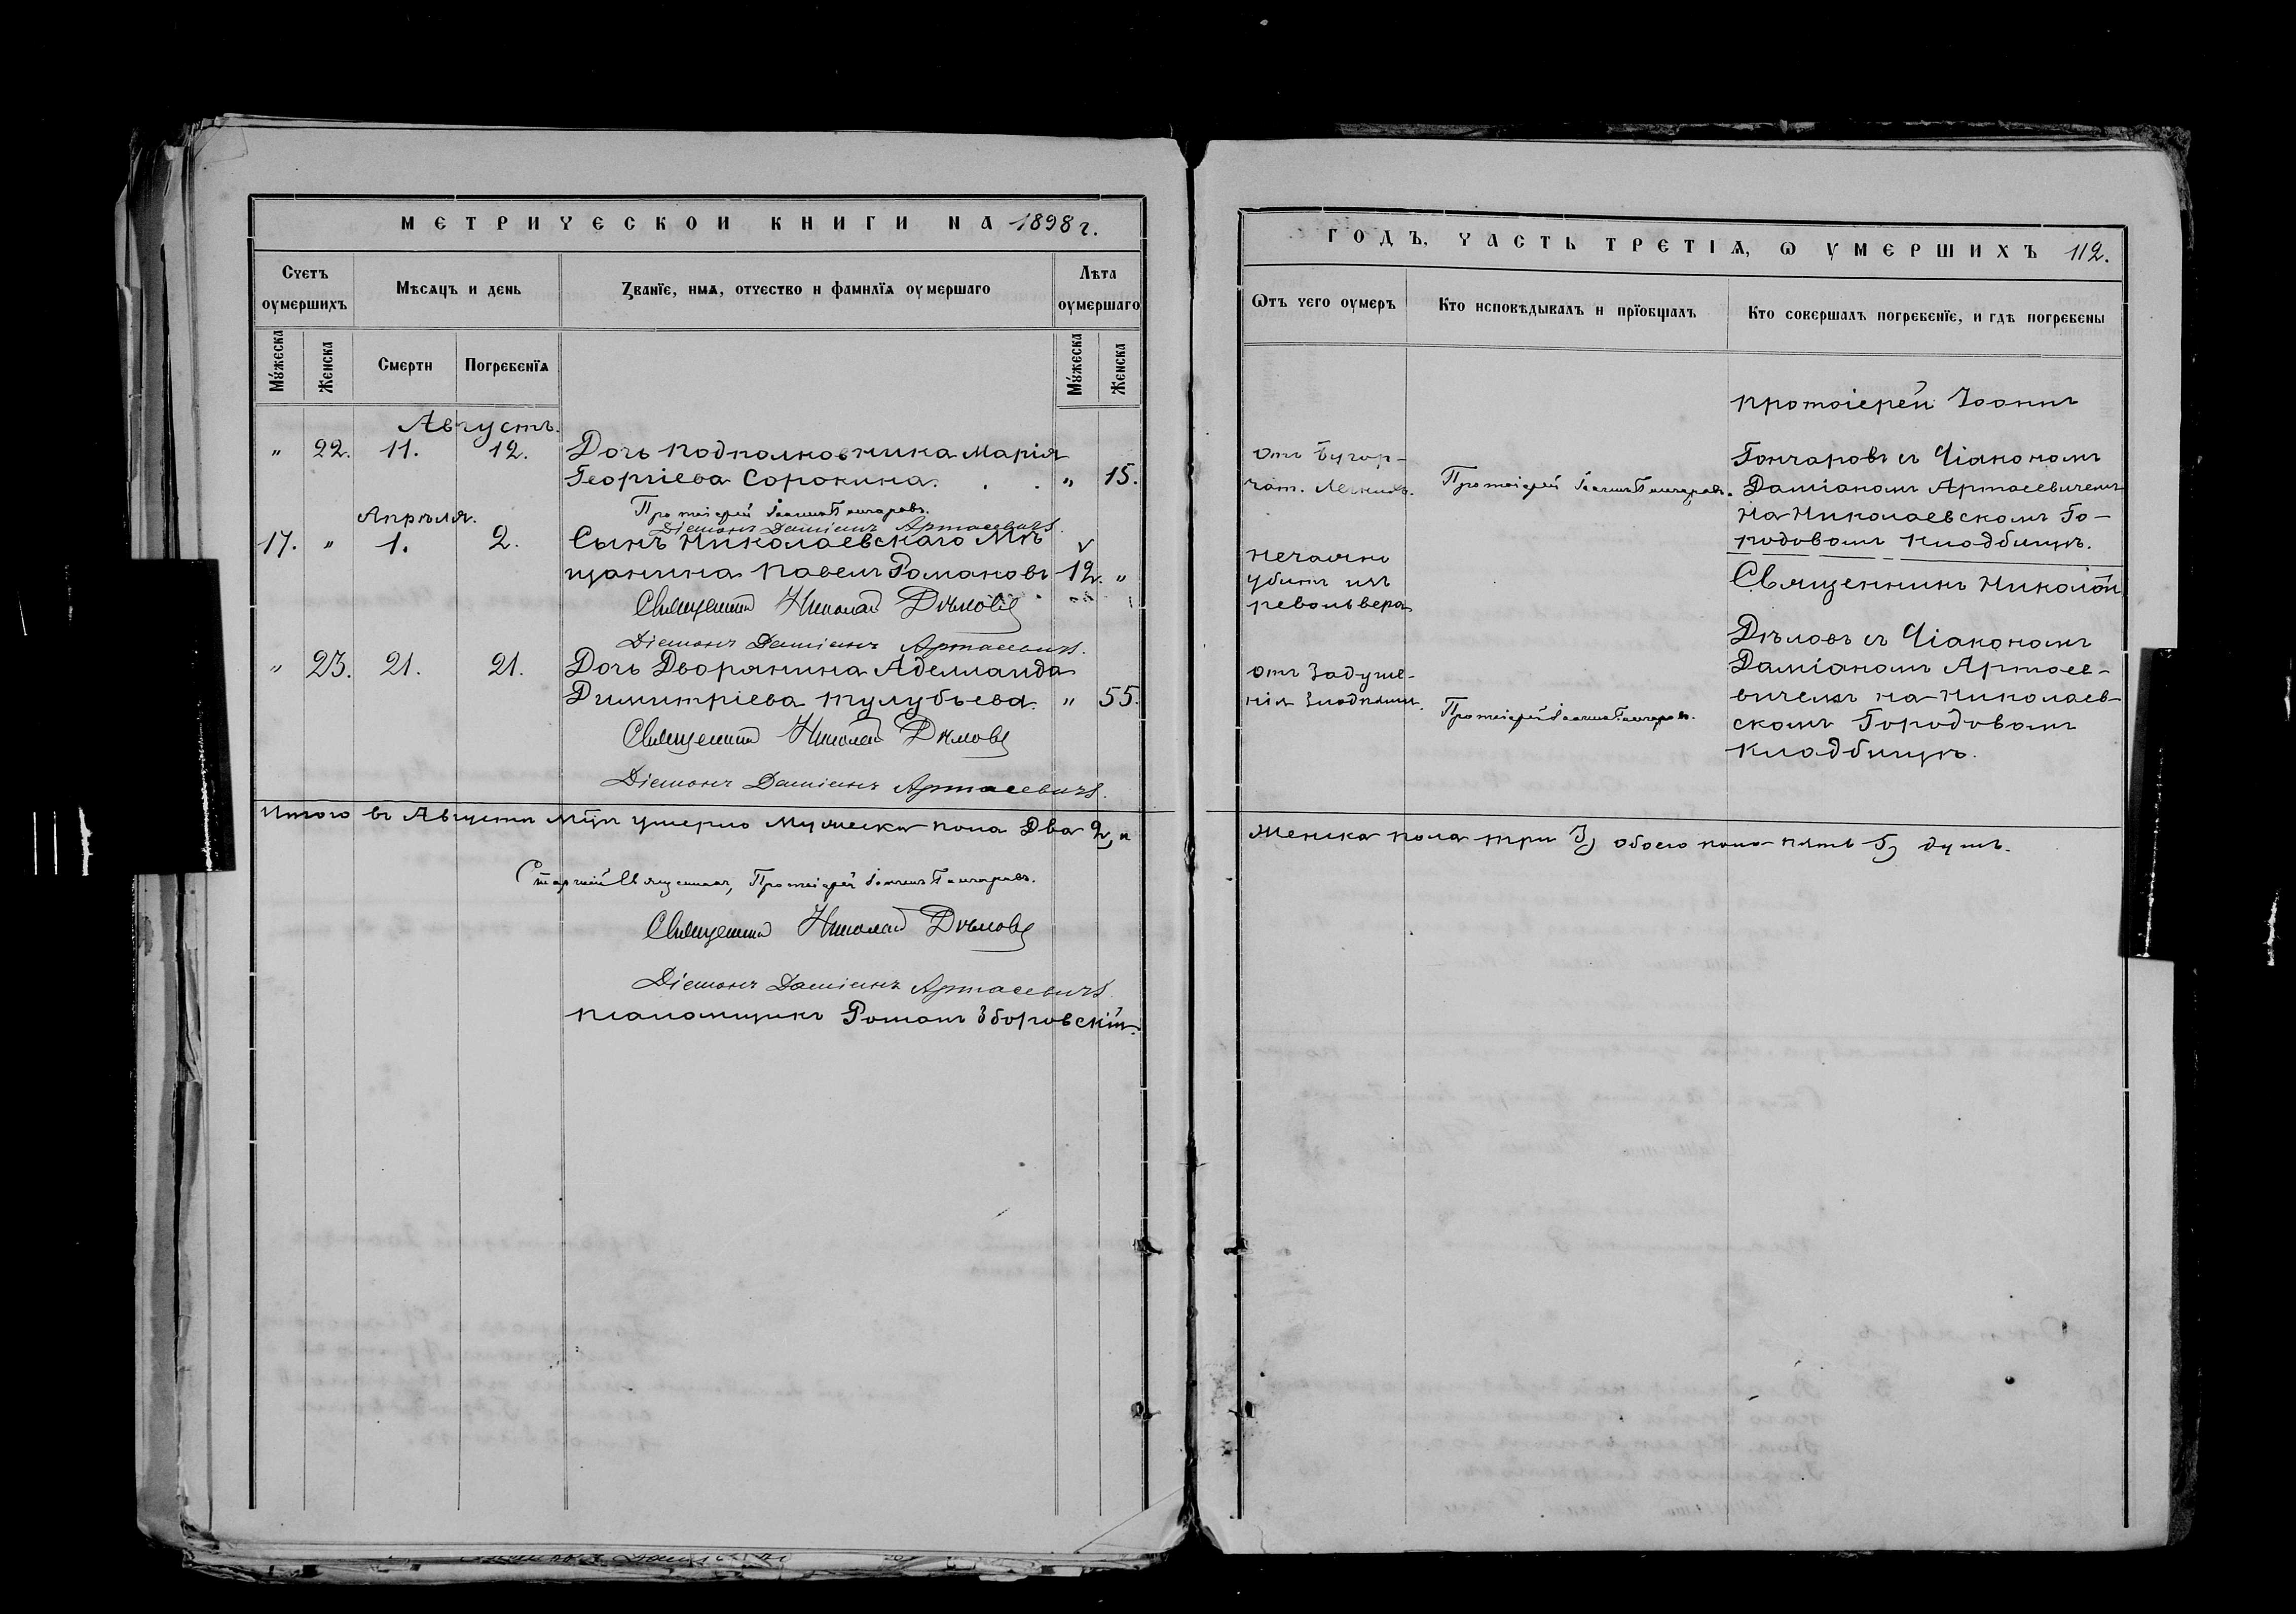 МЕТРИЧЕСКОИ КНИГИ НА 1898 г.
Счетъ оумершихъ
Мѣсяцъ и день
Званїе, имя, отчество и фамилїя оумершаго
Лѣта оумершаго
Мꙋжеска
Женска
Смерти
Погребенїя
Мꙋжеска
Женска
Августъ.
" 22. 11. 12. Дочь подполковника Марія
Георгіева Сорокина. . . " 15.
Протоіерей Іоаннъ Гончаровъ.
Діаконъ Даміанъ Артасевичъ.
Апрѣля.
17. " 1. 2. Сынъ Николаевскаго Мѣ
щанина Павелъ Романовъ 12. "
Священникъ Николай Дѣловъ
Діаконъ Даміанъ Артасевичъ.
" 23. 21. 21. Дочь Дворянина Аделаида
Димитріева Тулубьева. " 55.
Священникъ Николай Дѣловъ
Діаконъ Даміанъ Артасевичъ.
Итого въ Августѣ м-цѣ умерло Мужеска пола Два 2, и
Старшій Священникъ, Протоіерей Іоаннъ Гончаровъ.
Священникъ Николай Дѣловъ
Діаконъ Даміанъ Артасевичъ
псаломщикъ Романъ Зборовскій.
ГОДЪ, ЧАСТЬ ТРЕТІѦ, Ѡ УМЕРШИХЪ 112.
Ѿтъ чего оумеръ
Кто исповѣдывалъ и прїобщалъ
Кто совершалъ погребенїе, и гдѣ погребены
протоіерей Іоаннъ
отъ бугор-
Гончаровъ съ Діакономъ
чат. Легкихъ.
Протоіерей Іоаннъ Гончаровъ.
Даміаномъ Артасевичемъ
на Николаевскомъ Го-
родовомъ кладбищѣ.
нечаянно
убитъ изъ
револьвера
Священникъ Николай
Дѣловъ съ Діакономъ
отъ
Даміаномъ Артасе-
Протоіерей Іоаннъ Гончаровъ.
вичемъ на Николаев-
скомъ Городовомъ
кладбищѣ.
Женска пола три 3, обоего пола пять 5, душъ.